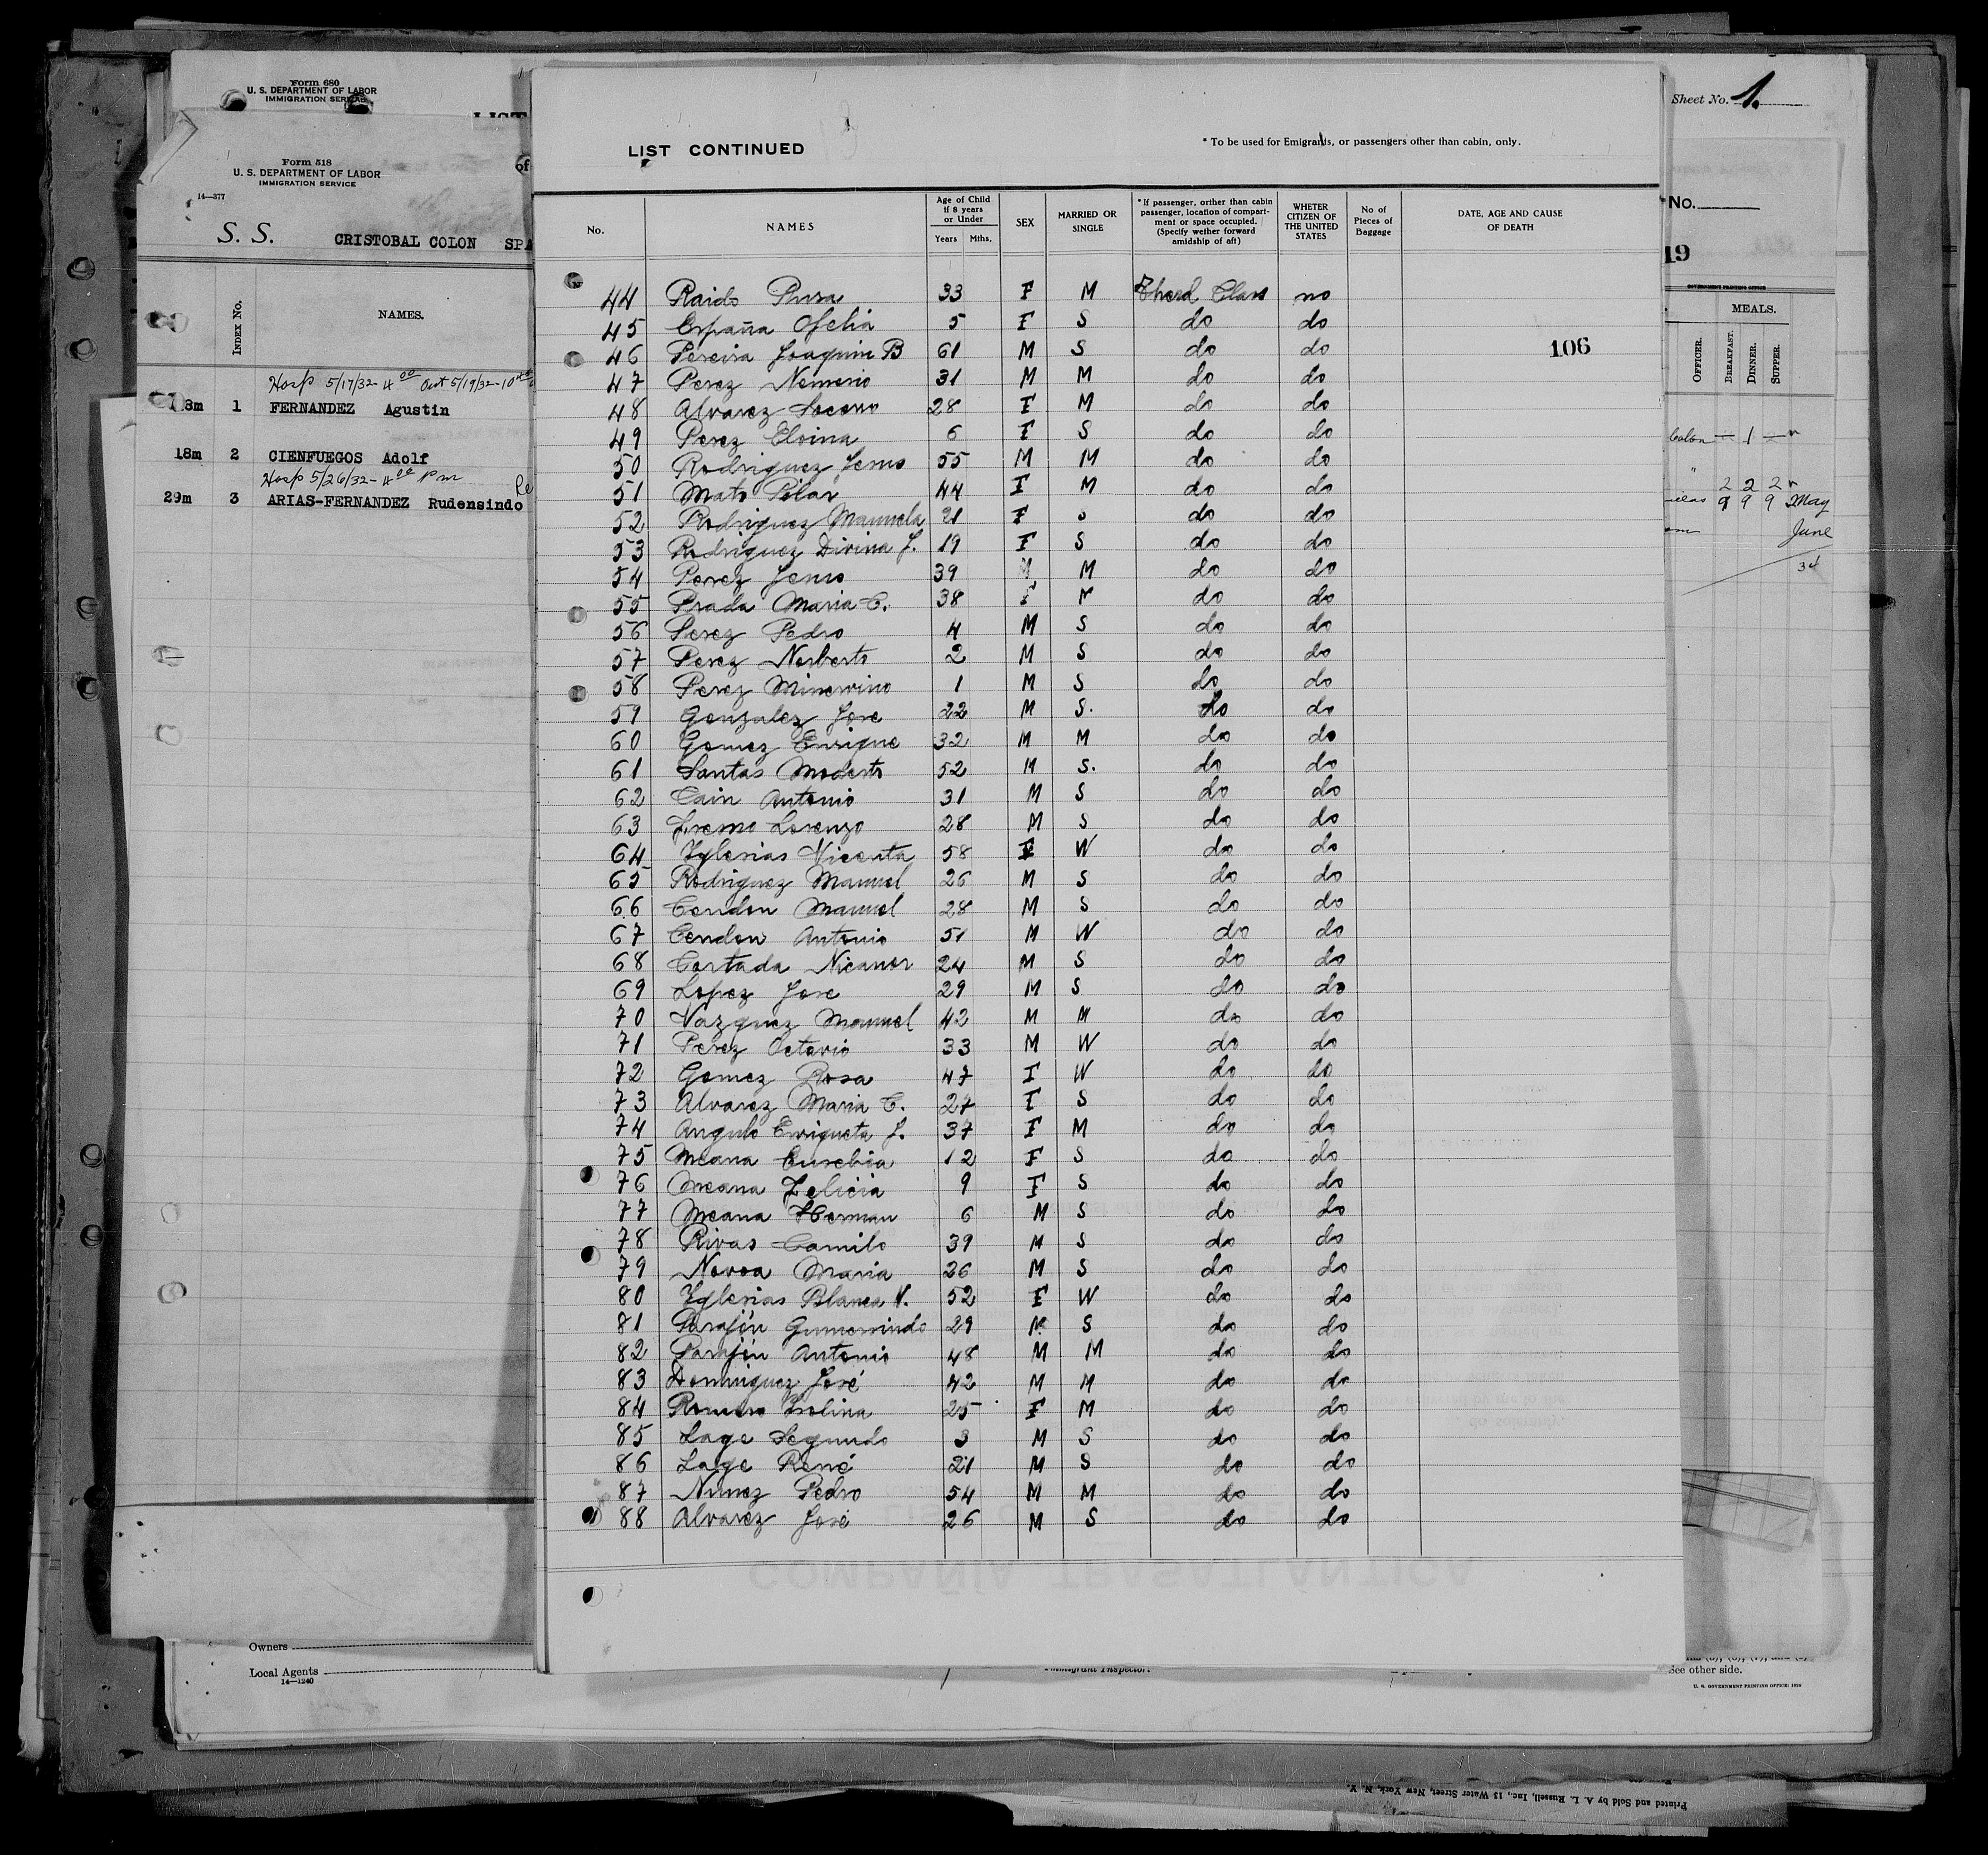 Form 680
U. S. DEPARTMENT OF LABOR
IMMIGRATION SERVICE
LIST
Form 518
U. S. DEPARTMENT OF LABOR
IMMIGRATION SERVICE
14—377
of
S. S. CRISTOBAL COLON SPA
INDEX No. NAMES.
Hosp 5/17/32 - 4 00 Out 5/19/32 - 10
18m 1 FERNANDEZ Agustin
18m 2 CIENFUEGOS Adolf
Hosp 5/26/32 - 4 00 pm
29m 3 ARIAS-FERNANDEZ Rudensindo
Owners
Local Agents
14—1240
LIST CONTINUED
* To be used for Emigrants, or passengers other than cabin, only.
No. NAMES Age of Child if 8 years or Under Years Mths, SEX MARRIED OR SINGLE * If passenger, orther than cabin passenger, location of compartiment or space occupied. (Specify wether forward amidship of aft) WHETER CITIZEN OF THE UNITED STATES No of Pieces of Baggage DATE, AGE AND CAUSE OF DEATH
44 Raido Pura 33 F M Therd Class no
45 España Ofelia 5 F S do do
46 Pereira Joaquin B 61 M S do do 106
47 Perez Nemesio 31 M M do do
48 Alvarez Socorro 28 F M do do
49 Perez Eloina 6 F S do do
50 Rodriguez Jesus 55 M M do do
51 Mato Pilar 44 F M do do
52 Rodriguez Manuela 21 F S do do
53 Rodriguez Divina J. 19 F S do do
54 Perez Jesus 39 M M do do
55 Prada Maria C. 38 F M do do
56 Perez Pedro 4 M S do do
57 Perez Norberto 2 M S do do
58 Perez Minervino 1 M S do do
59 Gonzalez Jose 22 M S. do do
60 Gomez Enrique 32 M M do do
61 Santas Modesto 52 M S. do do
62 Cain Antonio 31 M S do do
63 Lorenzo 28 M S do do
64 Yglesias Vicenta 58 F W do do
65 Rodriguez Manuel 26 M S do do
66 Cendon Manuel 28 M S do do
67 Cendon Antonio 51 M W do do
68 Cortada Nicanor 24 M S do do
69 Lopez Jose 29 M S do do
70 Vazquez Manuel 42 M M do do
71 Perez Octavio 33 M W do do
72 Gomez Rosa 47 F W do do
73 Alvarez Maria C. 27 F S do do
74 Angulo Enriqueta J. 37 F M do do
75 Meana Eusebia 12 F S do do
76 Meana Felicia 9 F S do do
77 Meana Herman 6 M S do do
78 Rivas Camilo 39 M S do do
79 Novoa Maria 26 M S do do
80 Yglesias Blanca V. 52 F W do do
81 Parajón Gumersindo 29 M S do do
82 Parajón Antonio 48 M M do do
83 Dominguez José 42 M M do do
84 Romero 25 F M do do
85 Lage Segundo 3 M S do do
86 Lage René 21 M S do do
87 Nunez Pedro 54 M M do do
88 Alvarez José 26 M S do do
COMPAÑIA TRASATLANTICA
Immigrant Inspector.
Sheet No. 1.
No.
19
GOVERNMENT PRINTING OFFICE
MEALS.
OFFICER. BREAKFAST. DINNER. SUPPER.
Colon — 1 —
" 2 2 2
9 9 9 May
June
34
See other side.
U. S. GOVERNMENT PRINTING OFFICE:
Printed and Sold by A. L. Russell, Inc., 13 Water Street, New York, N. Y.